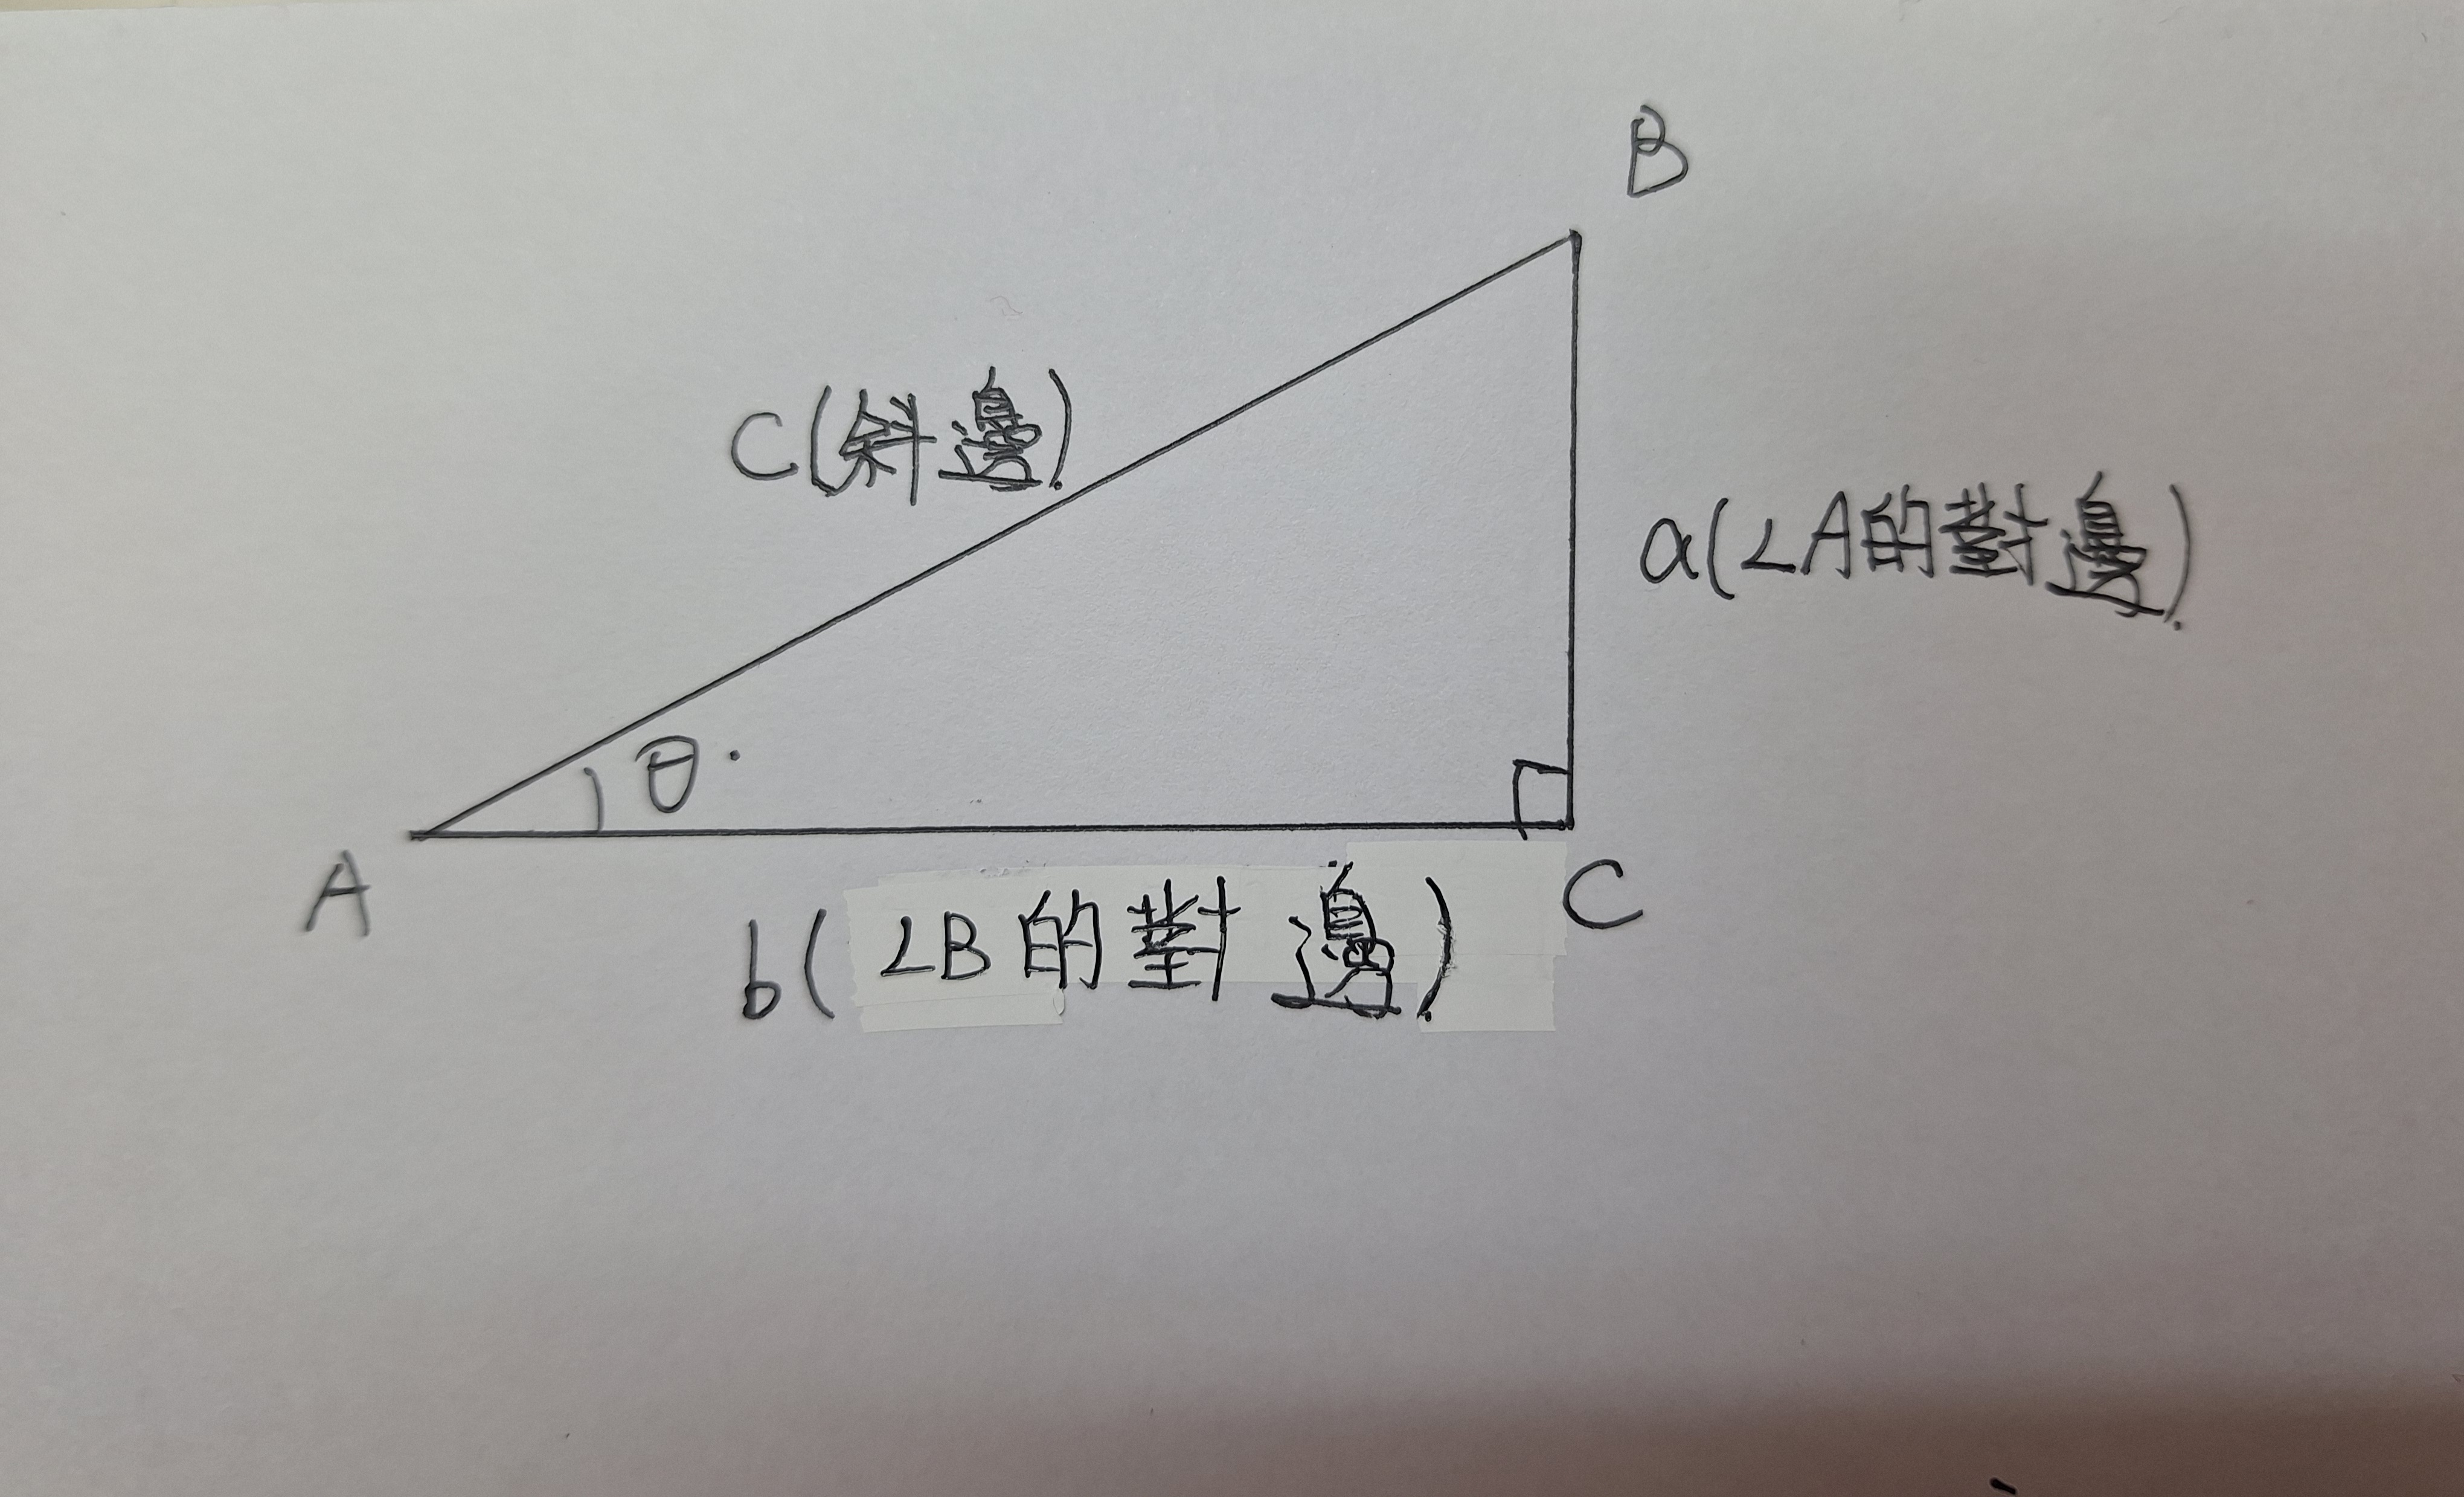 B
c(斜邊)
a(∠A的對邊)
θ
A
C
b(∠B的對邊)